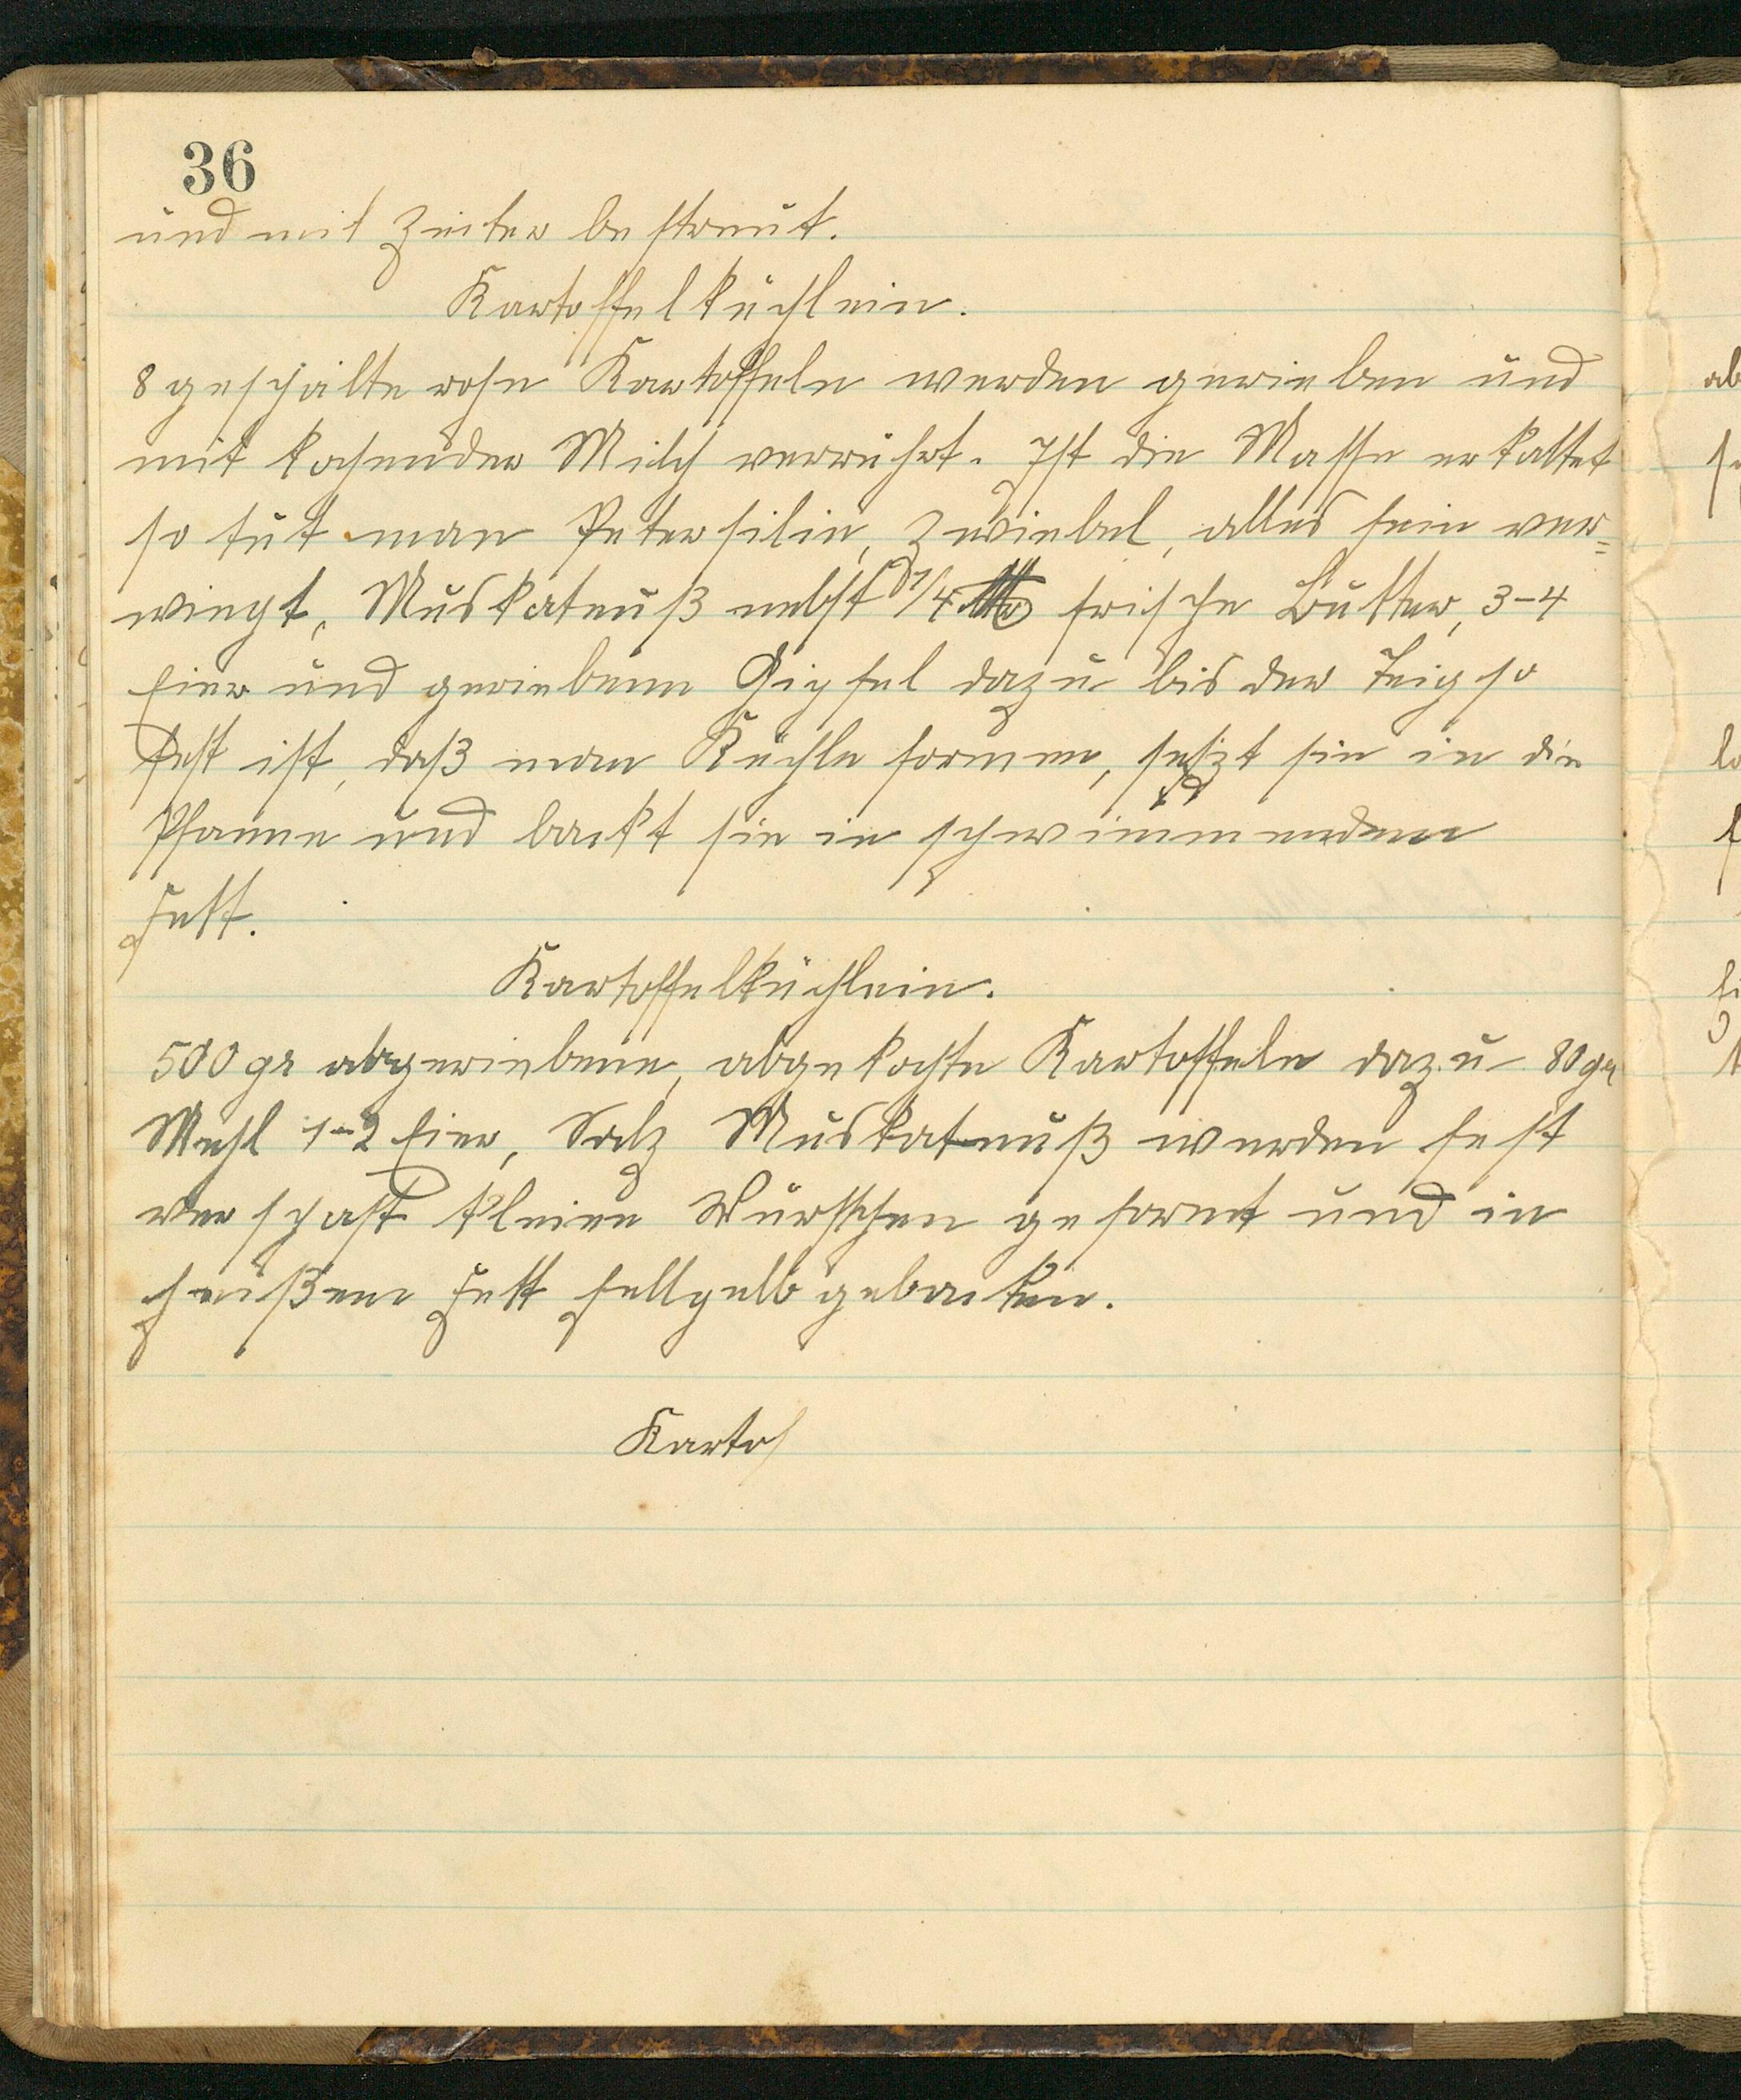 36
und mit Zucker bestreut.
Kartoffelküchlein.
8 geschälte rohe Kartoffeln werden gerieben und
mit kochender Milch verrührt. Ist die Masse erkaltet
so tut man Petersilie, Zwiebel, alles fein ver=
wiegt, Muskatnuß nebst 1/4 frische Butter, 3-4
Eier und geriebene Gipfel dazu bis der Teig so
fest ist, daß man Küchle formen, setzt sie in die
Pfanne und backt sie in schwimmendem
Fett.
Kartoffelküchlein.
500 gr abgeriebene, abgekochte Kartoffeln dazu 80 gr
Mehl 1-2 Eier, Salz Muskatnuß werden fest
verschaft kleine Würstchen geformt und in
heißem Fett hellgelb gebacken.
Kartof